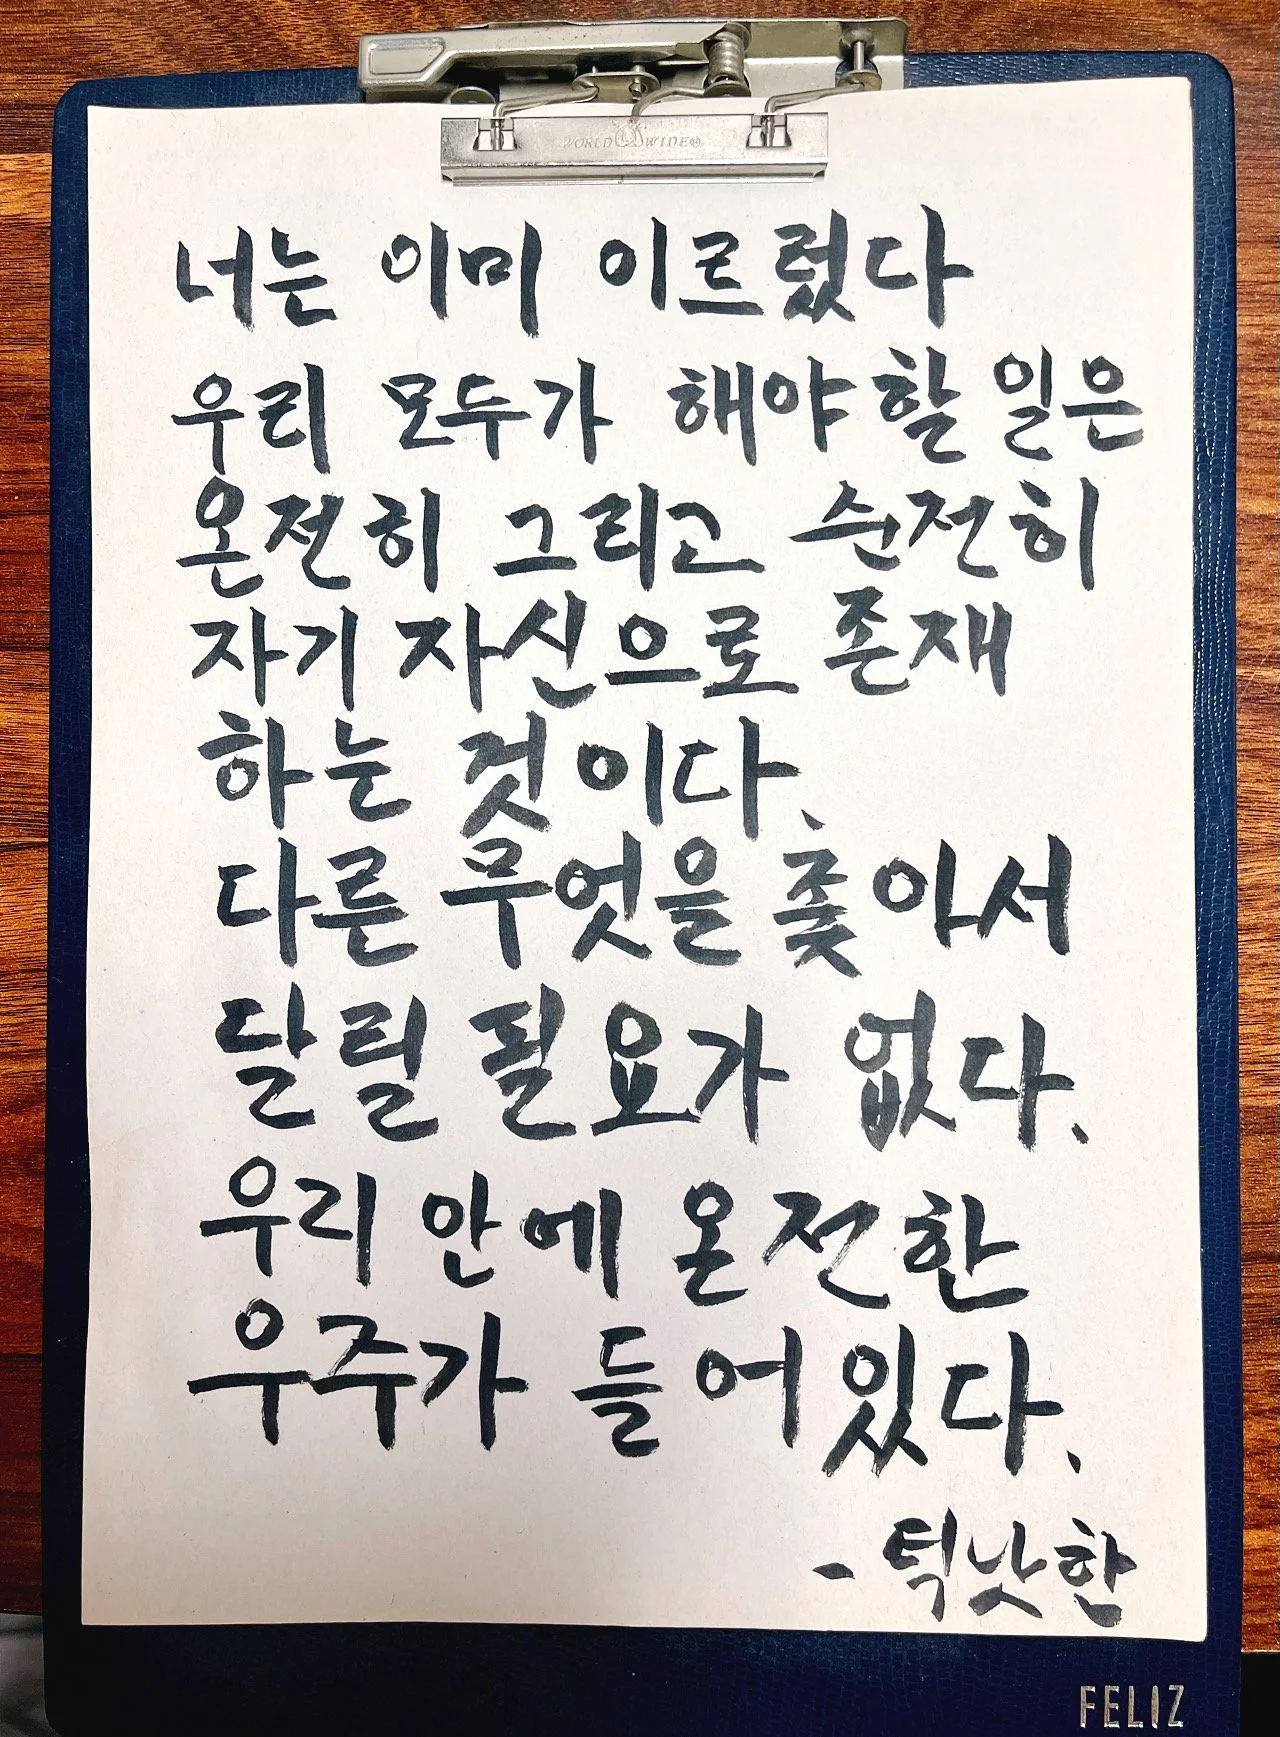 WORLD WIDE
너는 이미 이르렀다
우리 모두가 해야 할 일은
온전히 그리고 순전히
자기 자신으로 존재
하는 것이다.
다른 무엇을 좇아서
달릴 필요가 없다.
우리 안에 온전한
우주가 들어있다.
- 틱낫한
FELIZ